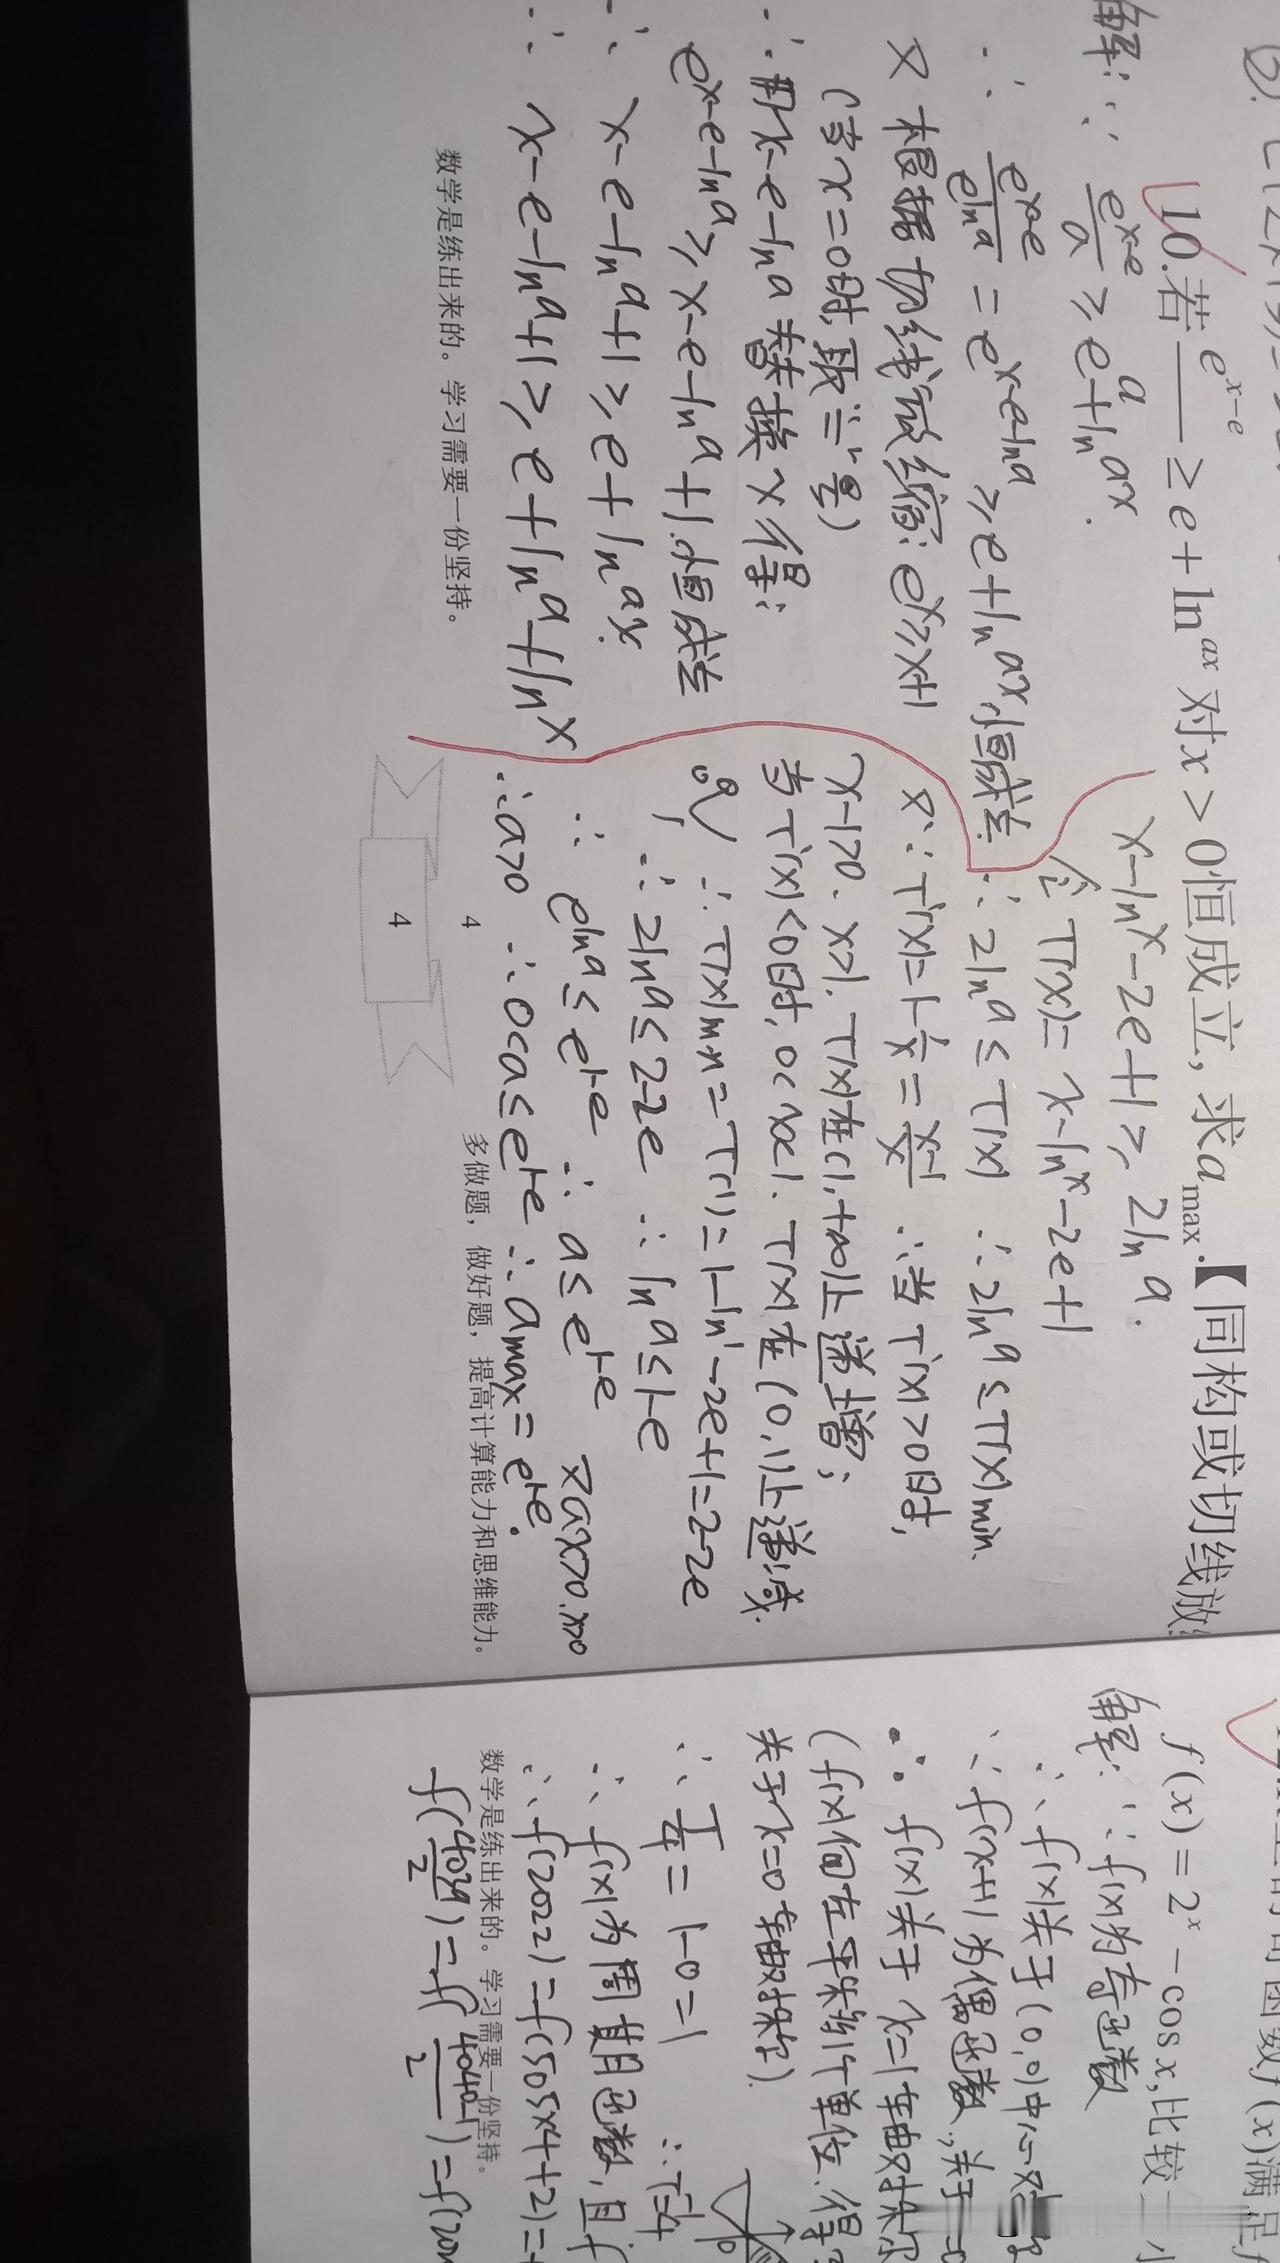 10.若 e^{x-e}/a ≥ e + ln^{ax} 对x > 0恒成立, 求a_{max}.【同构或切线放
解: ∵ e^{x-e}/a ≥ e+ln^{ax}.
∴ e^{x-e}/e^{ln^a} = e^{x-e-ln^a} ≥ e+ln^{ax}恒成立
又 根据切线放缩: e^x≥x+1
(当x=0时,取"="号)
∴ 用x-e-ln^a 替换x得:
e^{x-e-ln^a} ≥ x-e-ln^a+1.恒成立
∴ x-e-ln^a+1 ≥ e+ln^{ax}
∴ x-e-ln^a+1 ≥ e+ln^a+ln^x
x-ln^x-2e+1 ≥ 2ln^a.
令 T(x)= x-ln^x-2e+1
∴ 2ln^a ≤ T(x) ∴ 2ln^a ≤ T(x)min.
又∵ T'(x)=1-1/x = x-1/x ∴当T'(x)>0时,
x-1>0. x>1. T(x)在(1,+∞)上递增;
当T'(x)<0时, 0<x<1. T(x)在(0,1)上递减.
∴ T(x)min = T(1)=1-ln^1-2e+1=2-2e
∴ 2ln^a ≤ 2-2e ∴ ln^a ≤ 1-e
∴ e^{ln^a} ≤ e^{1-e} ∴ a ≤ e^{1-e} 又ax>0.x>0
∴a>0 ∴0<a≤e^{1-e} ∴ a_{max}= e^{1-e}.
数学是练出来的。学习需要一份坚持。
4
4
多做题，做好题，提高计算能力和思维能力。
f(x) = 2^x - cos x,比较
解: ∵ f(x)为奇函数
∴ f(x)关于(0,0)中心对
∵ f(x+1)为偶函数,关于
∴ f(x)关于x=1轴对称
(f(x)向左平移1个单位.得
关于x=0轴对称).
∴ T/4 = 1-0=1 ∴T=4
∴ f(x)为周期函数,且f
∴ f(2022)=f(505×4+2)=
数学是练出来的。学习需要一份坚持。